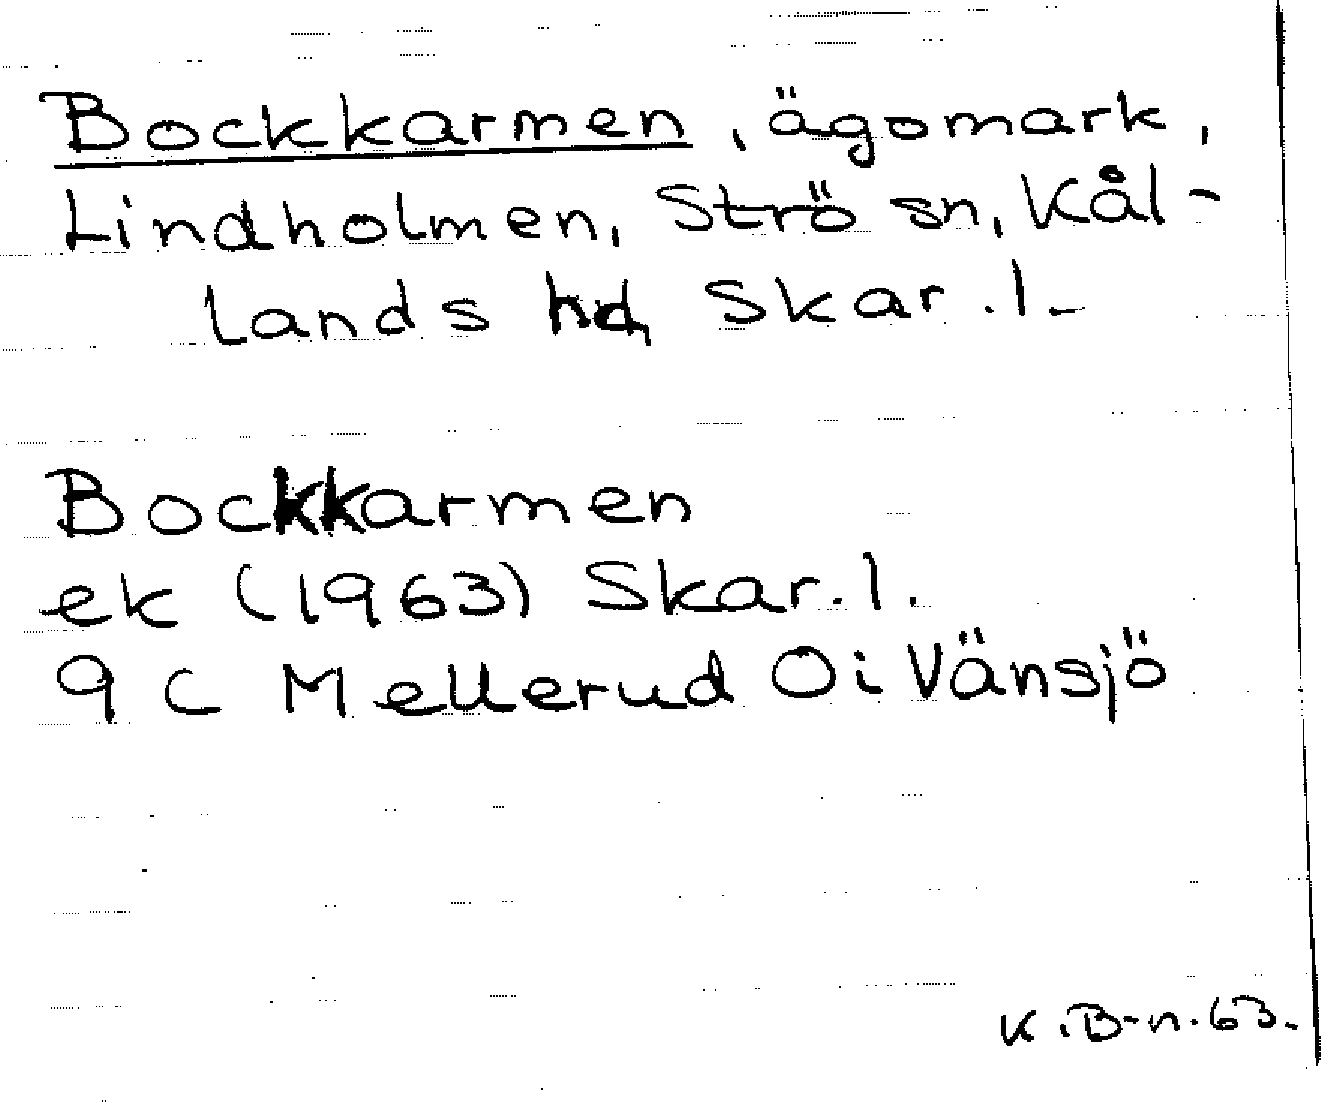 Bockkarmen, ägomark,
Lindholmen, Strö sn, Kål-
lands hd, Skar. l.
Bockkarmen
ek (1963) Skar. l.
9 C Mellerud Oi Vänsjö
K. B-n. 63.